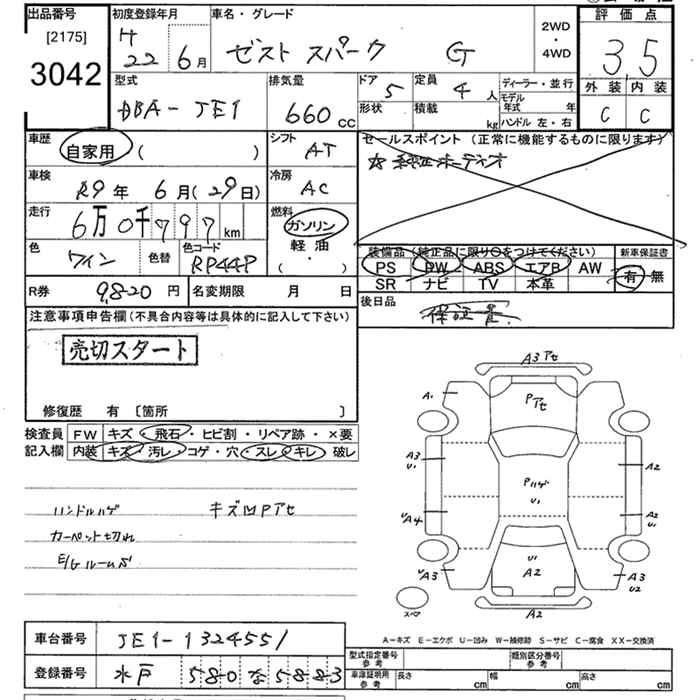 出品番号
[2175]
3042
初度登録年月
H
22 6月
車名・グレード
ゼスト スパーク G
2WD
・
4WD
評価点
3 5
外装 内装
C C
型式
DBA-JE1
排気量
660 cc
ドア
5
形状
定員
4 人
積載
kg
ディーラー・並行
モデル年式 年
ハンドル 左・右
車歴
自家用 ( )
シフト
AT
車検
R9年 6月(29日)
冷房
AC
走行
6万0千797km
燃料
ガソリン
軽油
( ・ )
色
ワイン
色替
色コード
RP44P
R券
9,820円
名変期限 月 日
セールスポイント (正常に機能するものに限ります)
☆純正オーディオ
装備品 (純正品に限り○をつけてください)
PS PW ABS エアB AW
SR ナビ TV 本革
新車保証書
有・無
後日品
保証書
注意事項申告欄 (不具合内容等は具体的に記入して下さい)
売切スタート
修復歴 有 〔箇所 〕
検査員
記入欄
FW キズ・飛石・ヒビ割・リペア跡・×要
内装 キズ・汚レ・コゲ・穴・スレ・キレ・破レ
ハンドルハゲ キズ凹Pアセ
カーペット切れ
E/Gルームサビ
A3 アセ
A1
Pアセ
A3
U1
A2
Pハゲ
U1
UA4
A2
U1
U1
A2
UA3
A3
U2
スペア
A2
A-キズ E-エクボ U-凹み W-補修跡 S-サビ C-腐食 XX-交換済
車台番号
JE1-1324551
登録番号
水戸 580 な 5883
型式指定番号
参考
類別区分番号
参考
車庫証明用
参考
長さ cm
幅 cm
高さ cm